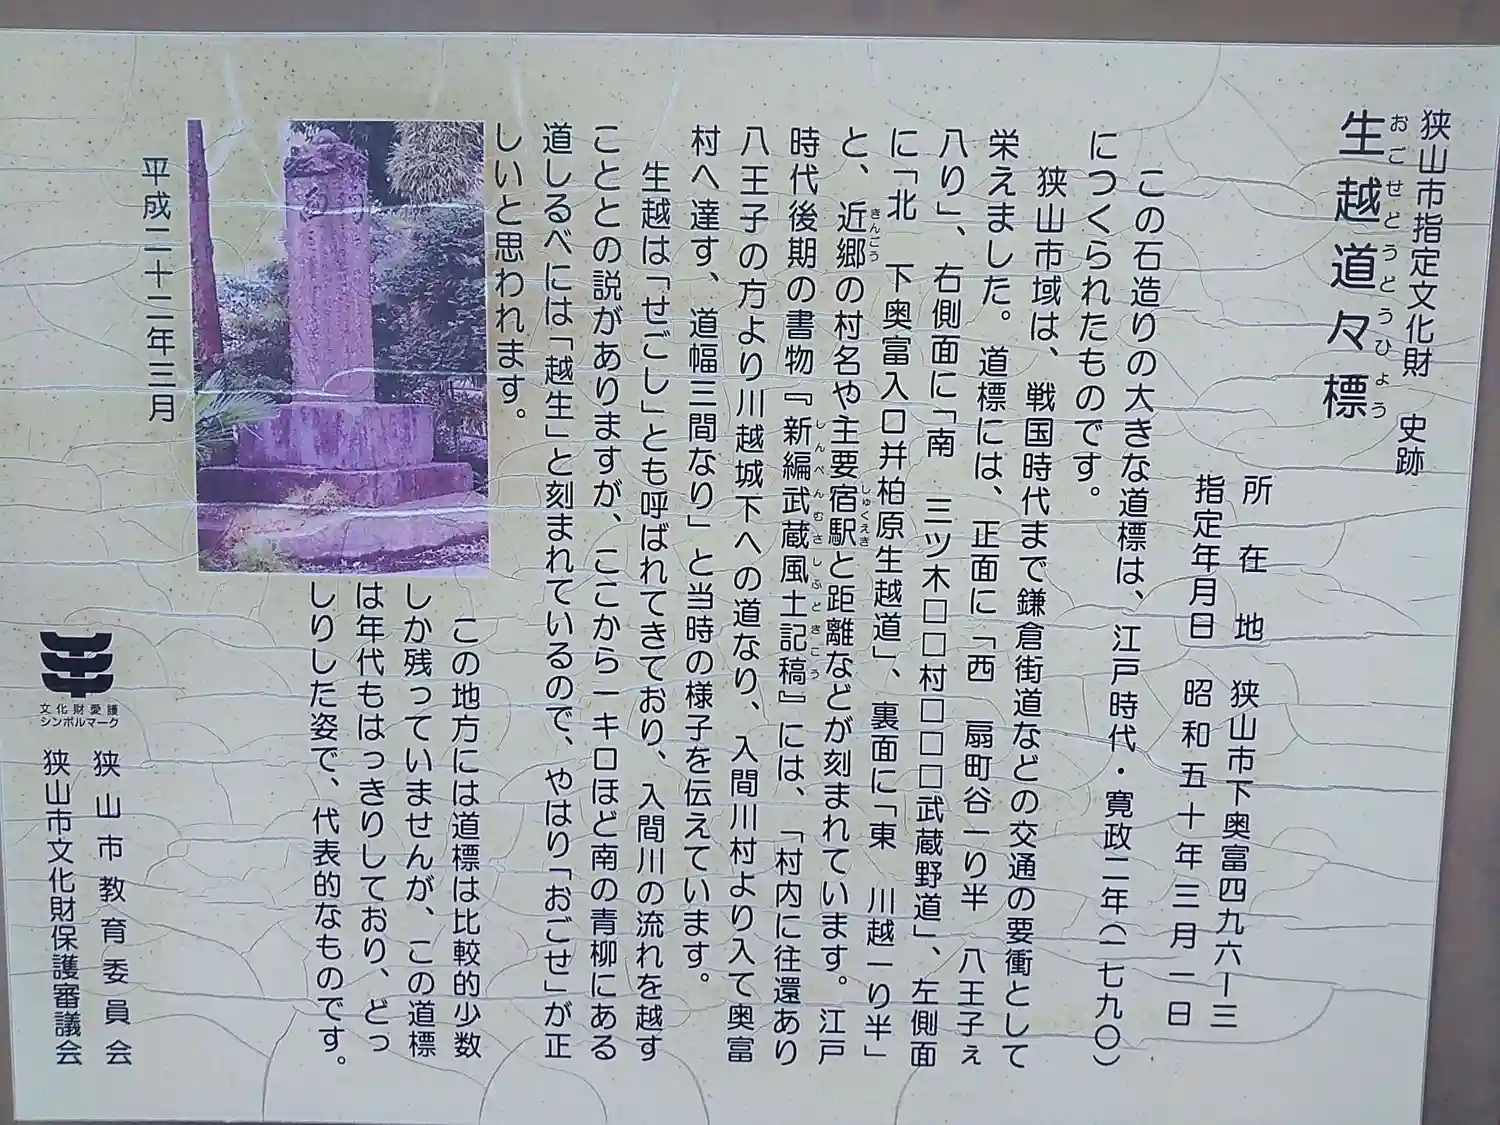 狭山市指定文化財　史跡
おごせどうどうひょう
生越道々標
所在地　狭山市下奥富四九六ー三
指定年月日　昭和五十年三月一日
この石造りの大きな道標は、江戸時代・寛政二年（一七九〇）
につくられたものです。
狭山市域は、戦国時代まで鎌倉街道などの交通の要衝として
栄えました。道標には、正面に「西　扇町谷一り半　八王子ぇ
八り」、右側面に「南　三ツ木□□村□□□武蔵野道」、左側面
に「北　下奥富入口并柏原生越道」、裏面に「東　川越一り半」
と、近郷の村名や主要宿駅と距離などが刻まれています。江戸
きんごう
しゅくえき
時代後期の書物『新編武蔵風土記稿』には、「村内に往還あり
しんぺんむさしふどきこう
八王子の方より川越城下への道なり、入間川村より入て奥富
村へ達す、道幅三間なり」と当時の様子を伝えています。
生越は「せごし」とも呼ばれてきており、入間川の流れを越す
こととの説がありますが、ここから一キロほど南の青柳にある
道しるべには「越生」と刻まれているので、やはり「おごせ」が正
しいと思われます。
この地方には道標は比較的少数
しか残っていませんが、この道標
は年代もはっきりしており、どっ
しりした姿で、代表的なものです。
平成二十二年三月
狭山市教育委員会
狭山市文化財保護審議会
文化財愛護
シンボルマーク